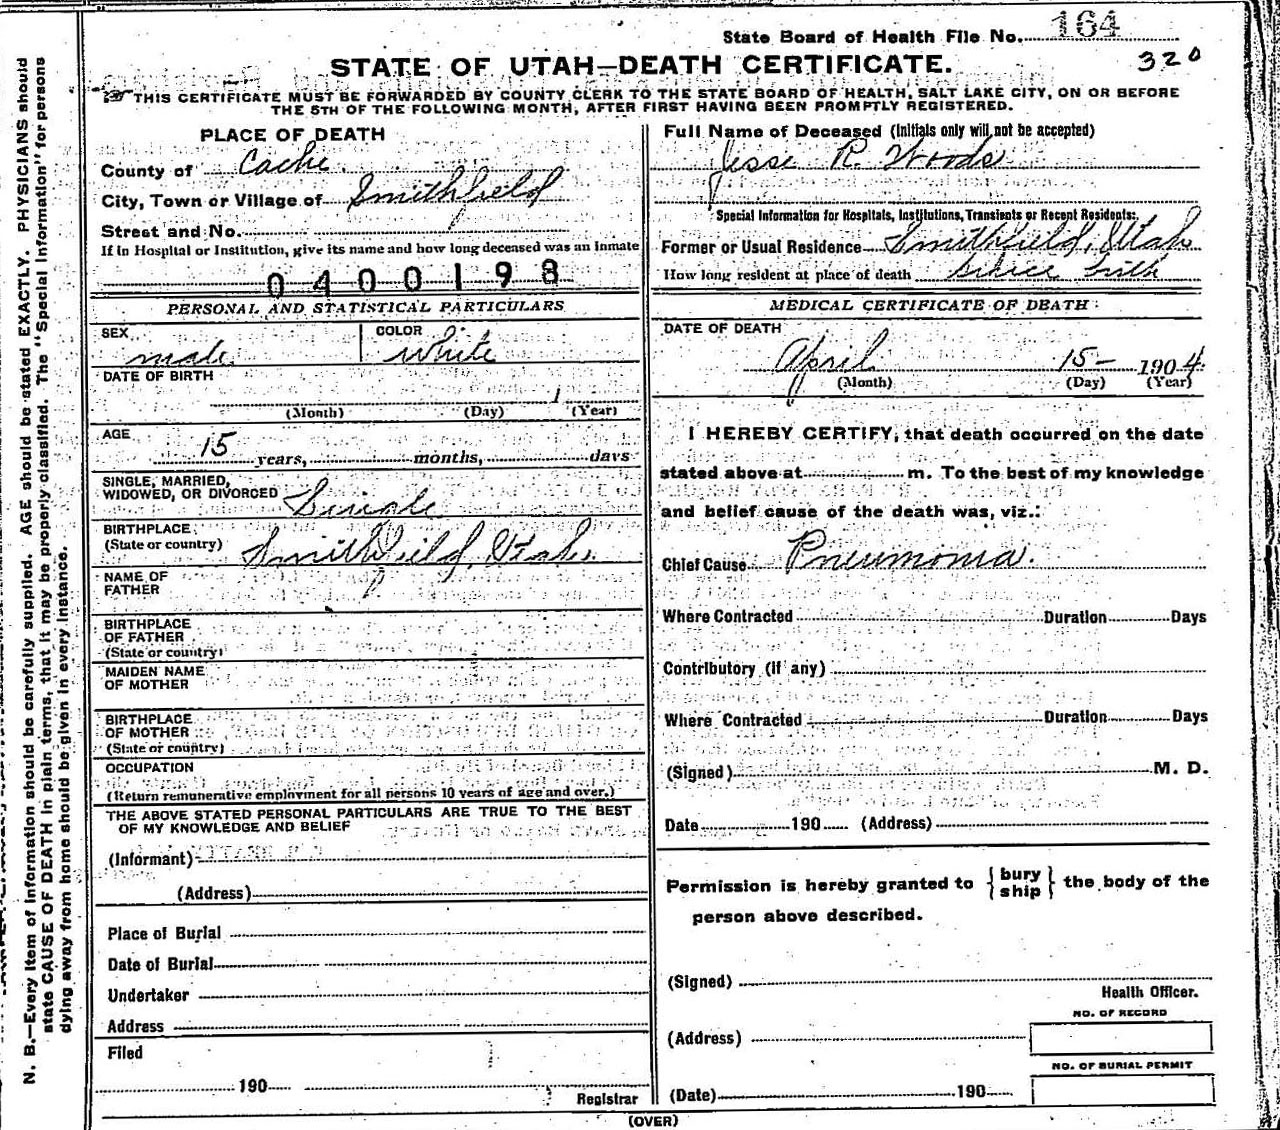 State Board of Health File No. 164
320
STATE OF UTAH—DEATH CERTIFICATE.
THIS CERTIFICATE MUST BE FORWARDED BY COUNTY CLERK TO THE STATE BOARD OF HEALTH, SALT LAKE CITY, ON OR BEFORE
THE 5TH OF THE FOLLOWING MONTH, AFTER FIRST HAVING BEEN PROMPTLY REGISTERED.
PLACE OF DEATH
County of Cache
City, Town or Village of Smithfield
Street and No.
If in Hospital or Institution, give its name and how long deceased was an inmate
0400198
PERSONAL AND STATISTICAL PARTICULARS
SEX male
COLOR white
DATE OF BIRTH
1
(Month) (Day) (Year)
AGE
15 years, months, days
SINGLE, MARRIED,
WIDOWED, OR DIVORCED Single
BIRTHPLACE
(State or country) Smithfield, Utah.
NAME OF
FATHER
BIRTHPLACE
OF FATHER
(State or country)
MAIDEN NAME
OF MOTHER
BIRTHPLACE
OF MOTHER
(State or country)
OCCUPATION
(Return remunerative employment for all persons 10 years of age and over.)
THE ABOVE STATED PERSONAL PARTICULARS ARE TRUE TO THE BEST
OF MY KNOWLEDGE AND BELIEF
(Informant)
(Address)
Place of Burial
Date of Burial
Undertaker
Address
Filed
190
Registrar
Full Name of Deceased (Initials only will not be accepted)
Jesse R. Woods
Special Information for Hospitals, Institutions, Transients or Recent Residents:
Former or Usual Residence Smithfield, Utah
How long resident at place of death Since birth
MEDICAL CERTIFICATE OF DEATH
DATE OF DEATH
April 15- 1904
(Month) (Day) (Year)
I HEREBY CERTIFY, that death occurred on the date
stated above at m. To the best of my knowledge
and belief cause of the death was, viz.:
Chief Cause Pneumonia.
Where Contracted Duration Days
Contributory (if any)
Where Contracted Duration Days
(Signed) M. D.
Date 190 (Address)
Permission is hereby granted to { bury
ship } the body of the
person above described.
(Signed)
Health Officer.
NO. OF RECORD
(Address)
NO. OF BURIAL PERMIT
(Date) 190
(OVER)
N. B.—Every item of information should be carefully supplied. AGE should be stated EXACTLY. PHYSICIANS should
state CAUSE OF DEATH in plain terms, that it may be properly classified. The "Special Information" for persons
dying away from home should be given in every instance.